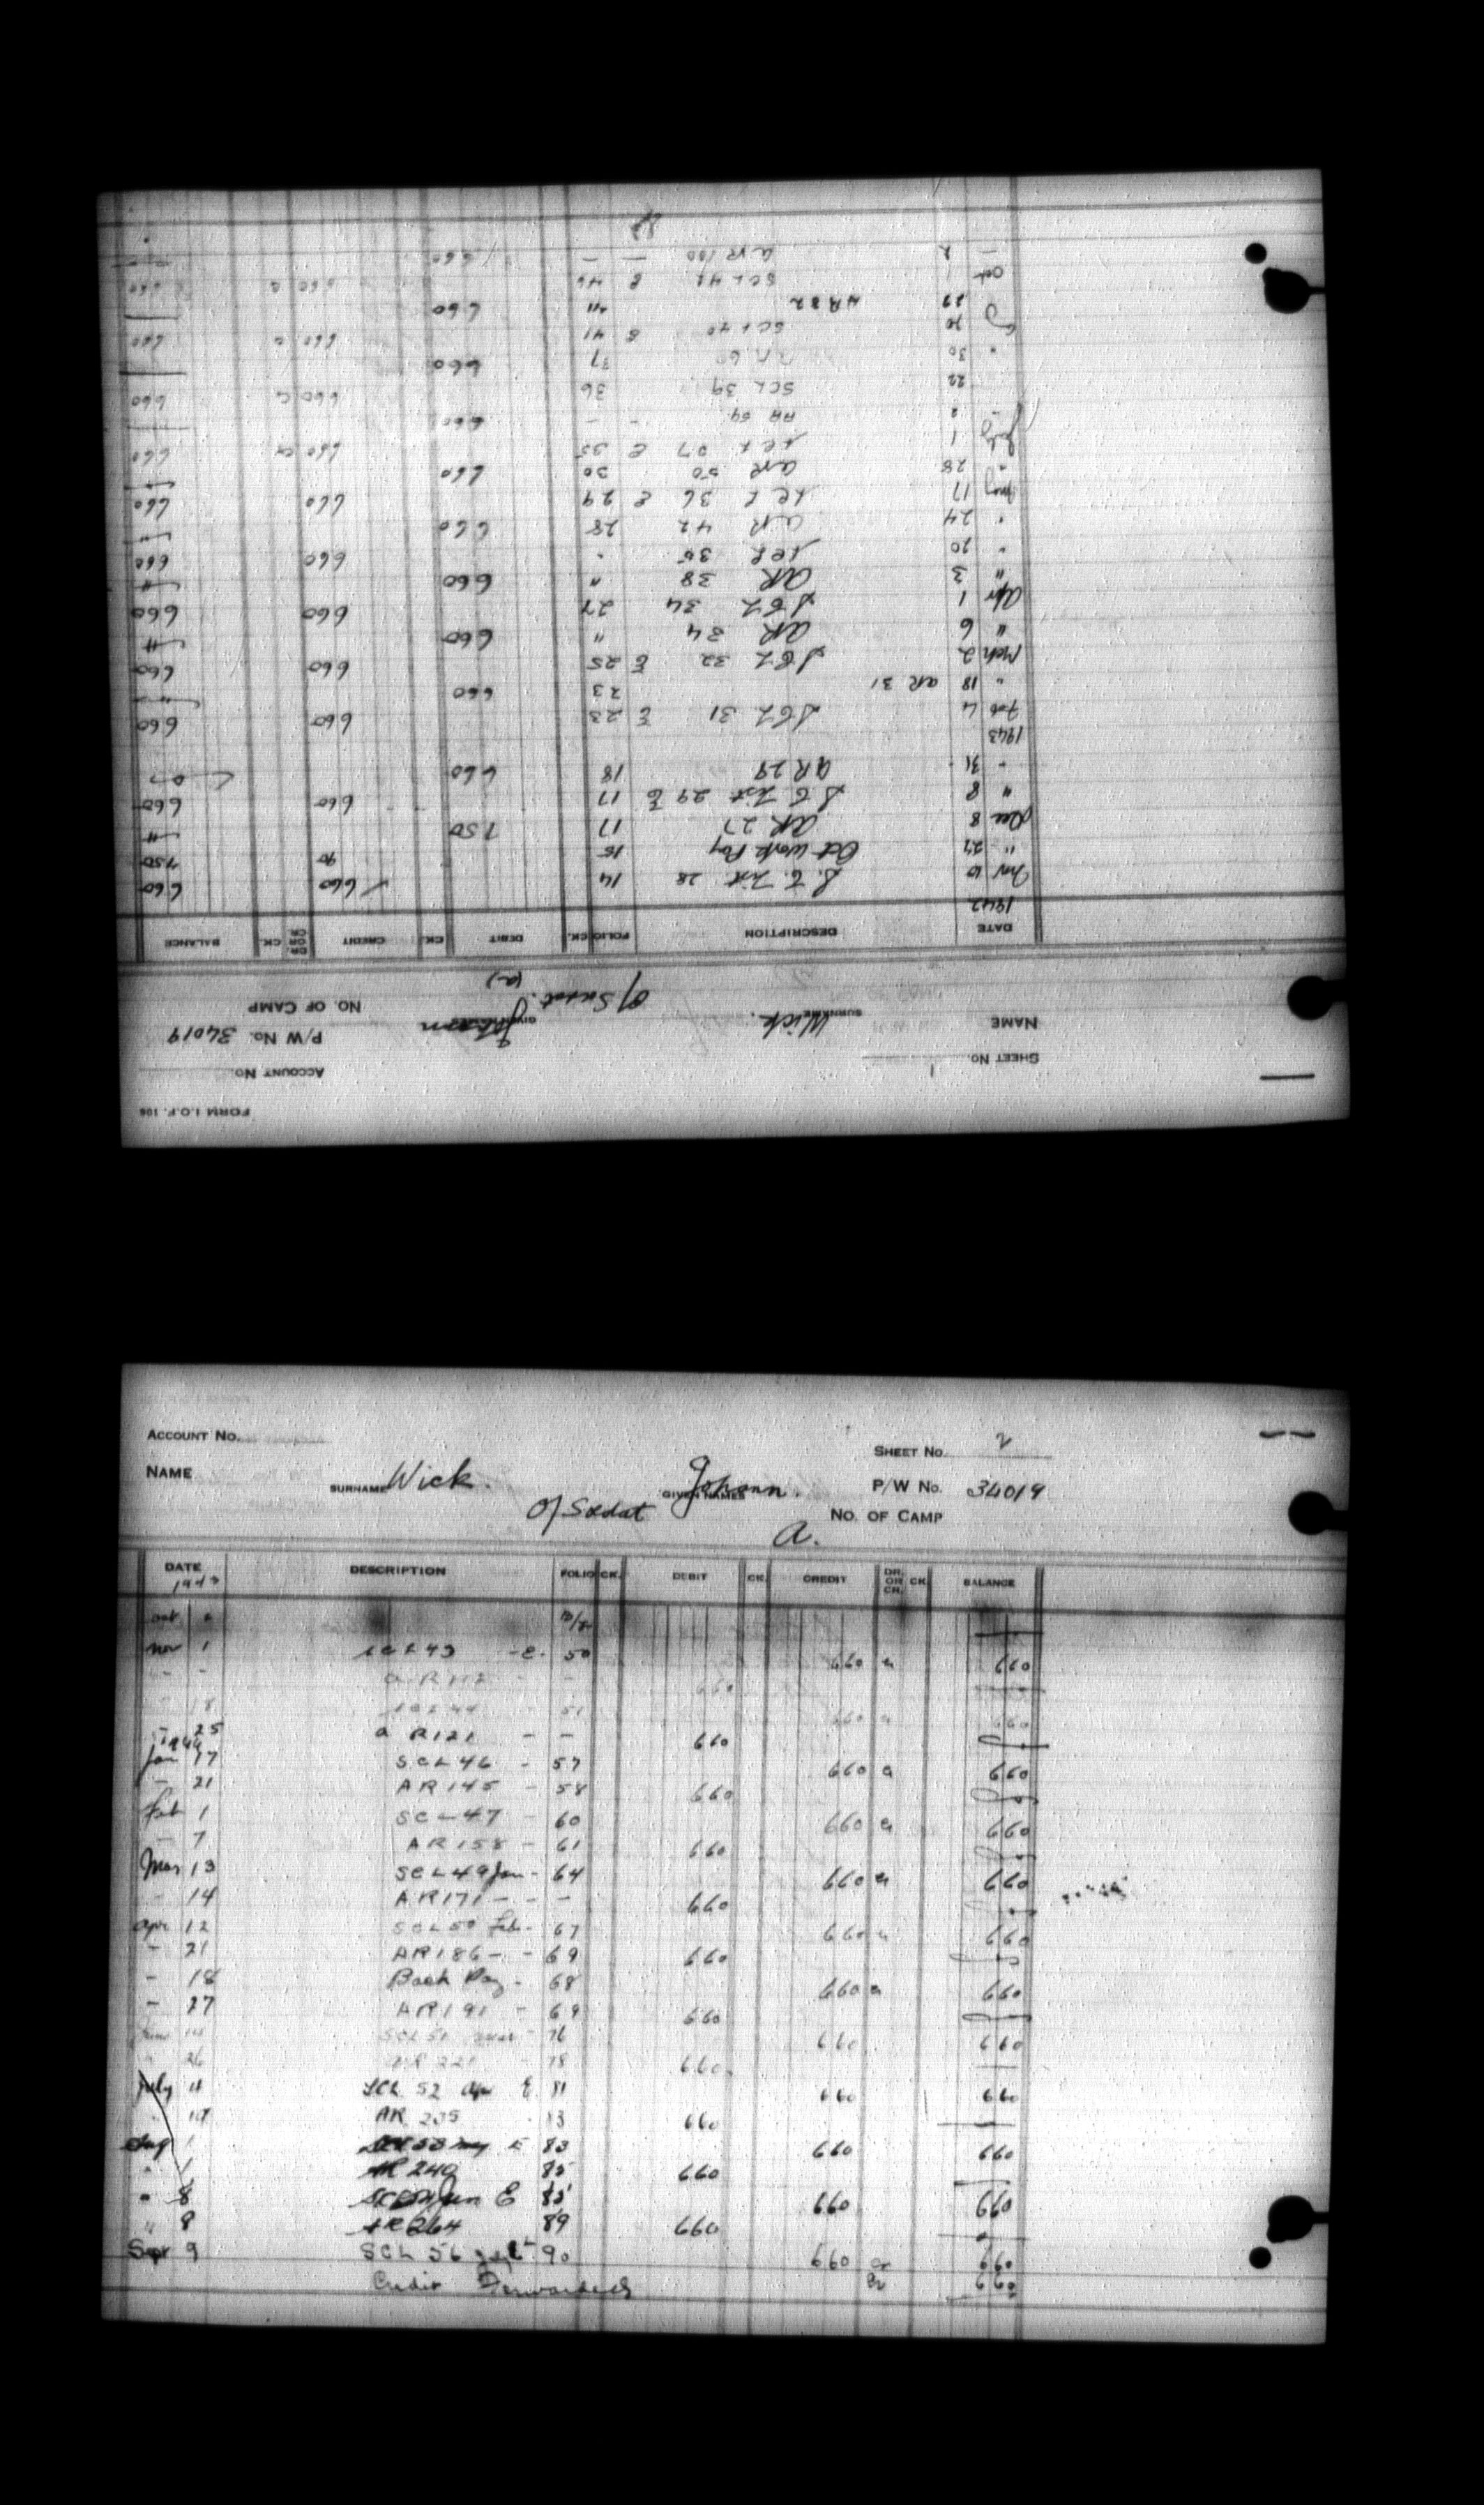 FORM I.O.F. 106
SHEET NO. 1 ACCOUNT NO.
NAME SURNAME Wick. GIVEN NAMES Johann P/W No. 34019
O/Soldat. (a) NO. OF CAMP
DATE DESCRIPTION FOLIO CK. DEBIT CK. CREDIT DR. OR CR. CK. BALANCE
1942
Nov 10 S. E. List 28 14 660 660
" 27 Oct Work Pay 15 90 750
Dec 8 AR 27 17 750
" 8 S E List 29 E 17 660 660
" 31 AR 29 18 660
1943
Feb 4 SEL 31 E 23 660 660
" 18 AR 31 23 660
Mch 2 SEL 32 E 25 660 660
" 6 AR 34 " 660
Apr 1 SEL 34 27 660 660
" 3 AR 38 " 660
" 20 SCL 35 " 660 660
" 24 AR 42 28 660
May 17 SCL 36 E 29 660 660
" 28 AR 50 30 660
July 1 SCL 37 E 35 660 660
" 2 AR 59 - - 660
22 SCL 39 36 660 660
" 30 AR 60 37 660
20 SCL 40 E 41 660 660
27 AR 82 " 660
Oct 1 SCL 42 E 46 660 660
— 2 AR 100 — — 660
ACCOUNT NO. SHEET NO. 2
NAME SURNAME Wick. GIVEN NAMES Johann. P/W NO. 34019
O/Soldat A. NO. OF CAMP
DATE DESCRIPTION FOLIO CK. DEBIT CK. CREDIT DR. OR CR. CK. BALANCE
1943
Oct
Nov 1 SCL 43 - E. 50 660 660
- - AR 112 - - 660
- 18 SCL 44 - 51 660 660
- 25 a R 121 - - 660
1944
Jan 17 SCL 46 - 57 660 660
- 21 AR 145 - 58 660
Feb 1 SCL 47 - 60 660 660
- 7 AR 158 - 61 660
Mar 13 SCL 49 Jan - 64 660 660
- 14 AR 171 - - - 660
Apr 12 SCL 50 Feb - 67 660 660
- 21 AR 186 - - 69 660
- 18 Back Pay - 68 660 660
- 27 AR 191 - 69 660
June 14 SCL 51 - 76 660 660
26 AR 221 78 660
July 11 SCL 52 Apr E 81 660 660
19 AR 235 83 660
Aug 1 SCL 53 May E 83 660 660
" 1 AR 249 85 660
" 8 Jun E 85 660 660
" 8 AR 264 89 660
Sept 9 SCL 56 90 660 Cr 660
Credit Forwarded Cr 660